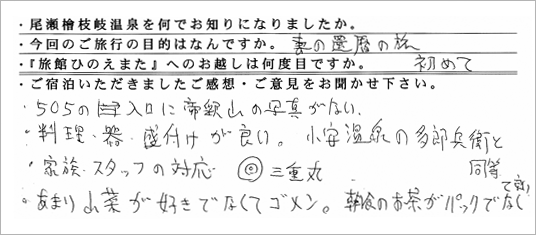 ・尾瀬檜枝岐温泉を何でお知りになりましたか。
・今回のご旅行の目的はなんですか。 妻の還暦の旅
・『旅館ひのえまた』へのお越しは何度目ですか。 初めて
・ご宿泊いただきましたご感想・ご意見をお聞かせ下さい。
・505の入口に帝釈山の写真がない
・料理・器・盛付けが良い。小安温泉の多郎兵衛と同等
・家族・スタッフの対応 ◎三重丸
・あまり山菜が好きでなくてゴメン。朝食のお茶がパックでなくて良い